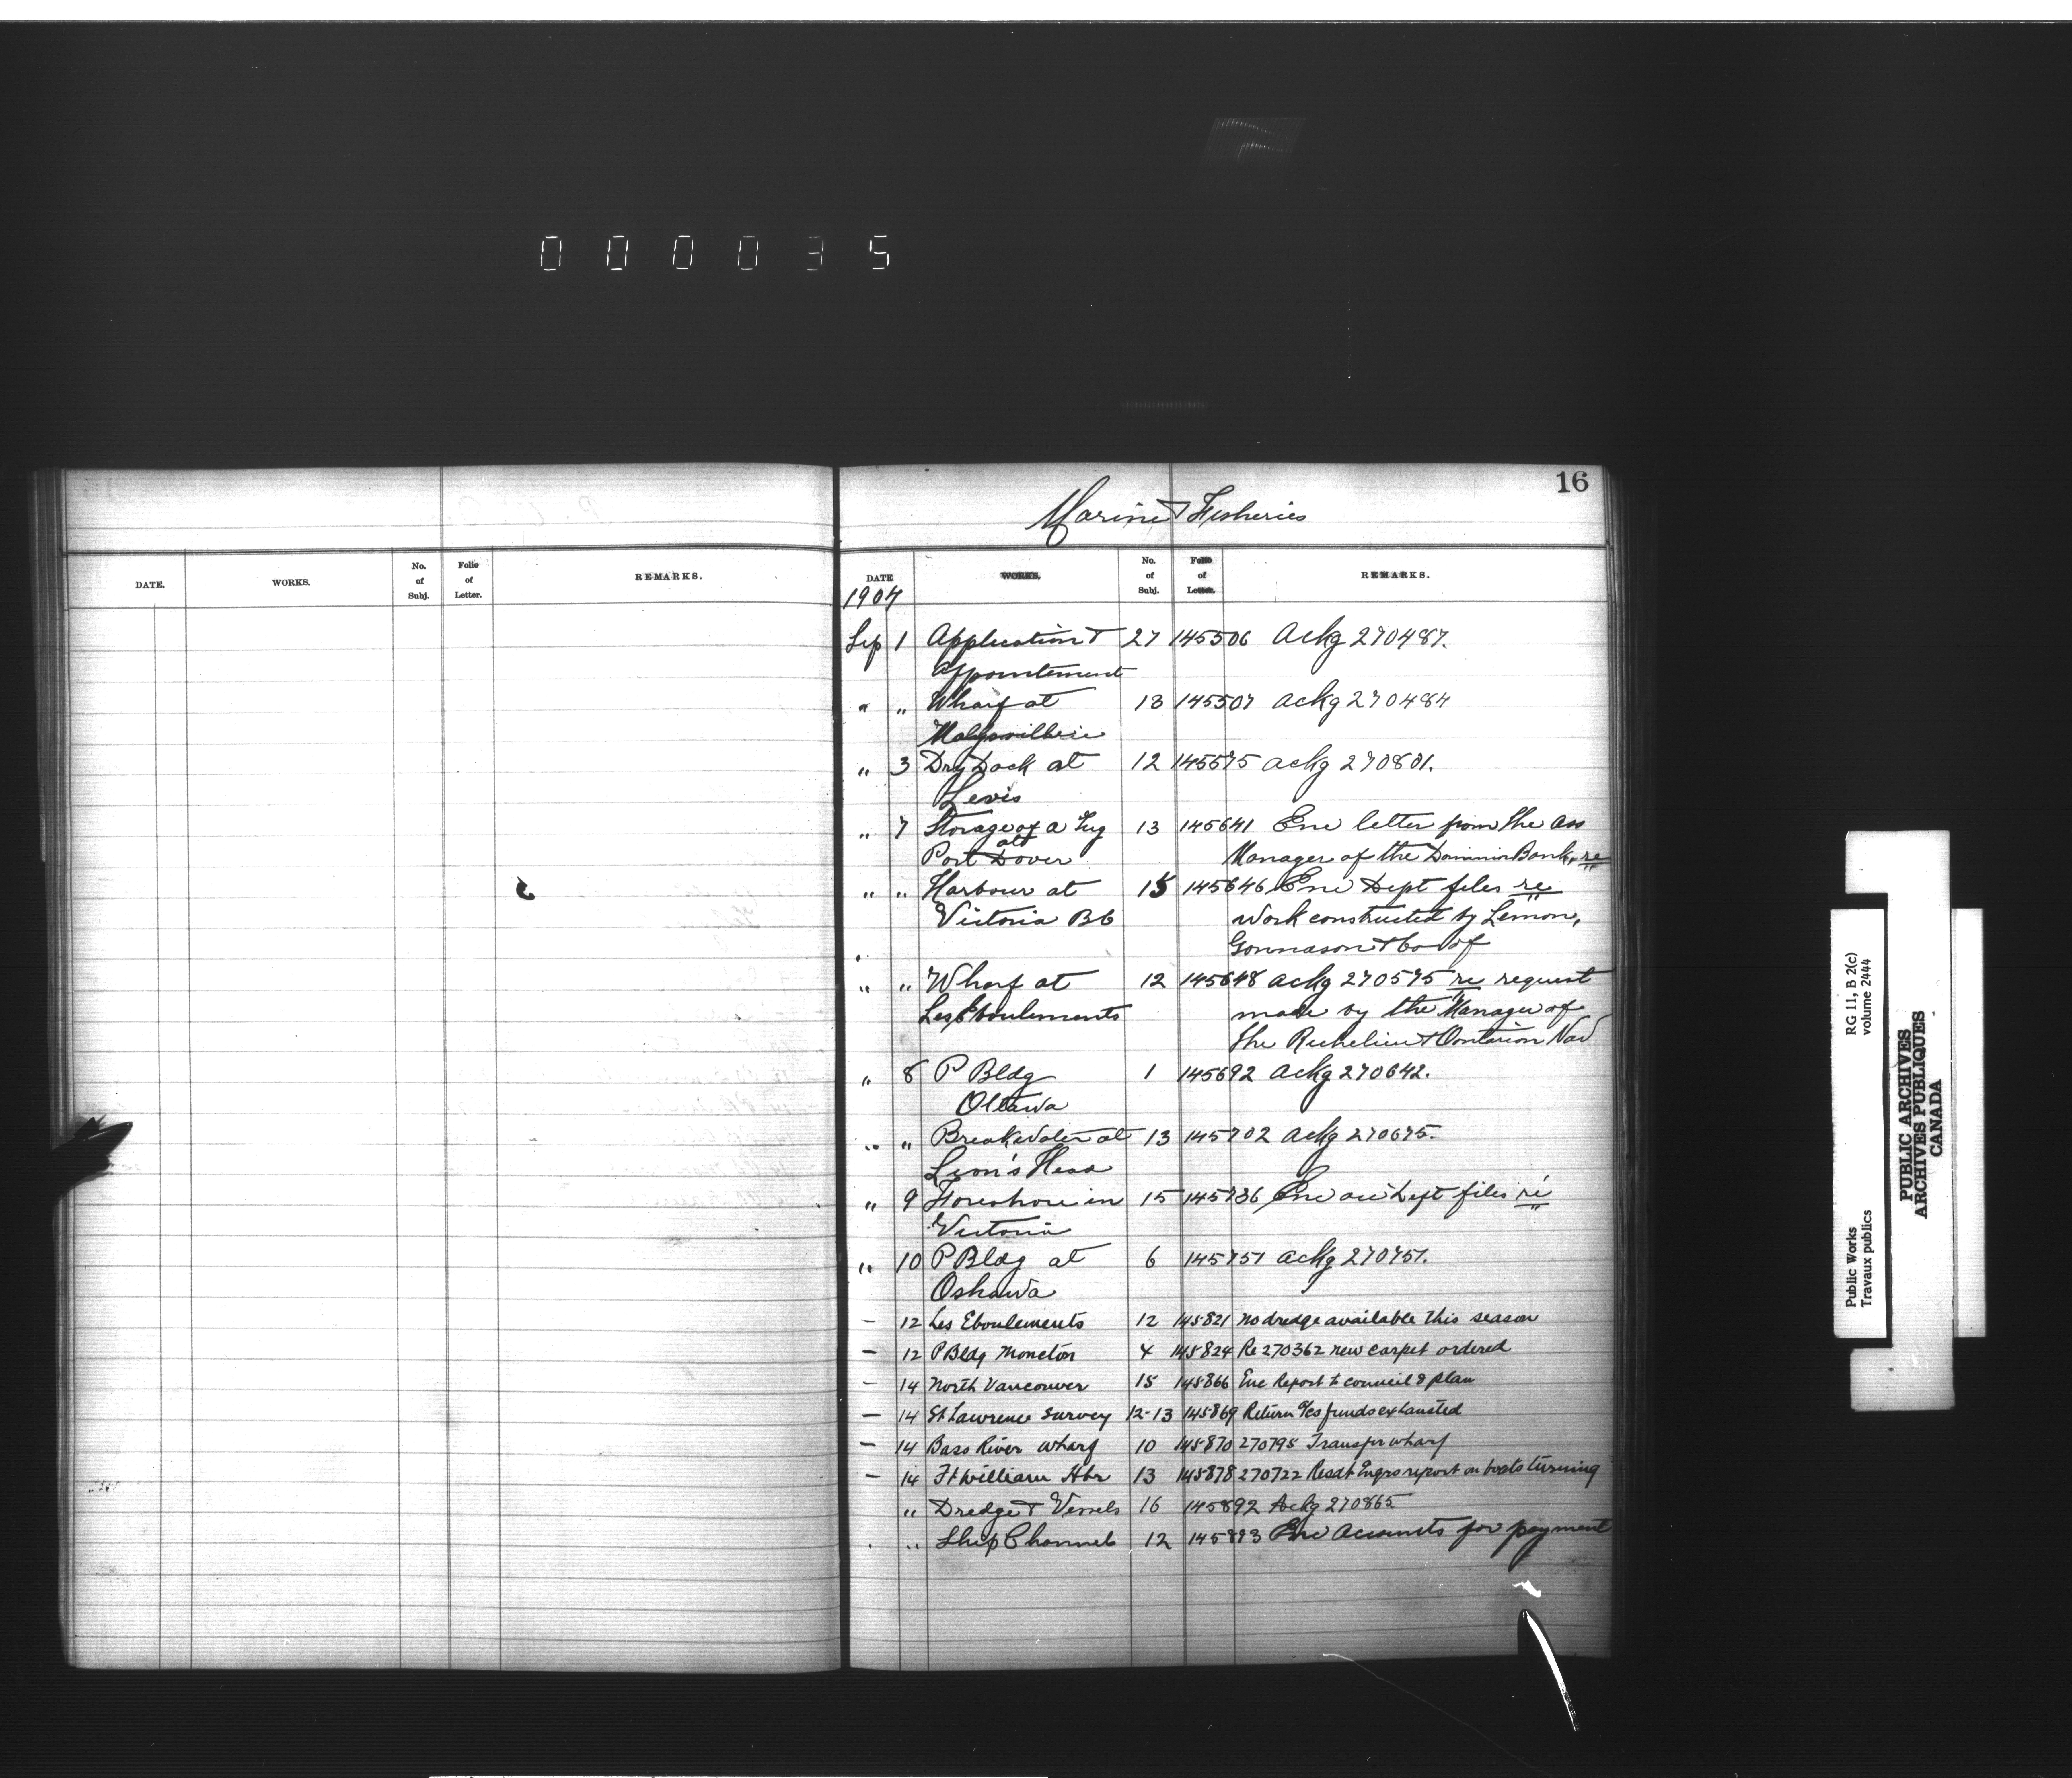 0 0 0 0 3 5
16
Marine & Fisheries
DATE. WORKS. No. of Subj. Folio of Letter. REMARKS.
DATE WORKS. No. of Subj. Folio of Letter. REMARKS.
1904
Sep 1 Application & 27 145506 Ackg 270487.
Appointement
" " Wharf at 13 145507 ackg 270484
" 3 Dry Dock at 12 145575 ackg 270801.
Levis
" 7 Storage of a Tug 13 145641 Enc letter from the ass
Port Dover Manager of the Dominion Bank, re
" " Harbour at 15 145646 Enc Dept files re
Victoria BC work constructed by Lemon,
Gonnason & Co of
" " Wharf at 12 145648 ackg 270575 re request
Les Eboulements made by the Manager of
the Richelieu & Ontarion Nav
" 8 P Bldg 1 145692 Ackg 270642.
Ottawa
" " Breakwater at 13 145702 Ackg 270675.
Lion's Head
" 9 Foreshore in 15 145736 Enc our Dept files re
Victoria
" 10 P Bldg at 6 145751 ackg 270751.
Oshawa
- 12 Les Eboulements 12 145821 no dredge available this season
- 12 P Bldg Moncton 4 145824 Re 270362 new carpet ordered
- 14 North Vancouver 15 145866 Enc Report to council & plan
- 14 St Lawrence Survey 12-13 145869 Return a/cs funds exhausted
- 14 Bass River wharf 10 145870 270795 Transfer wharf
- 14 Ft William Hbr 13 145878 270722 Resdt Engrs report on boats turning
" Dredge & Vessels 16 145892 Ackg 270865
" Ship Channel 12 145893 Enc Accounts for payment
Public Works RG 11, B 2(c)
Travaux publics volume 2444
PUBLIC ARCHIVES
ARCHIVES PUBLIQUES
CANADA